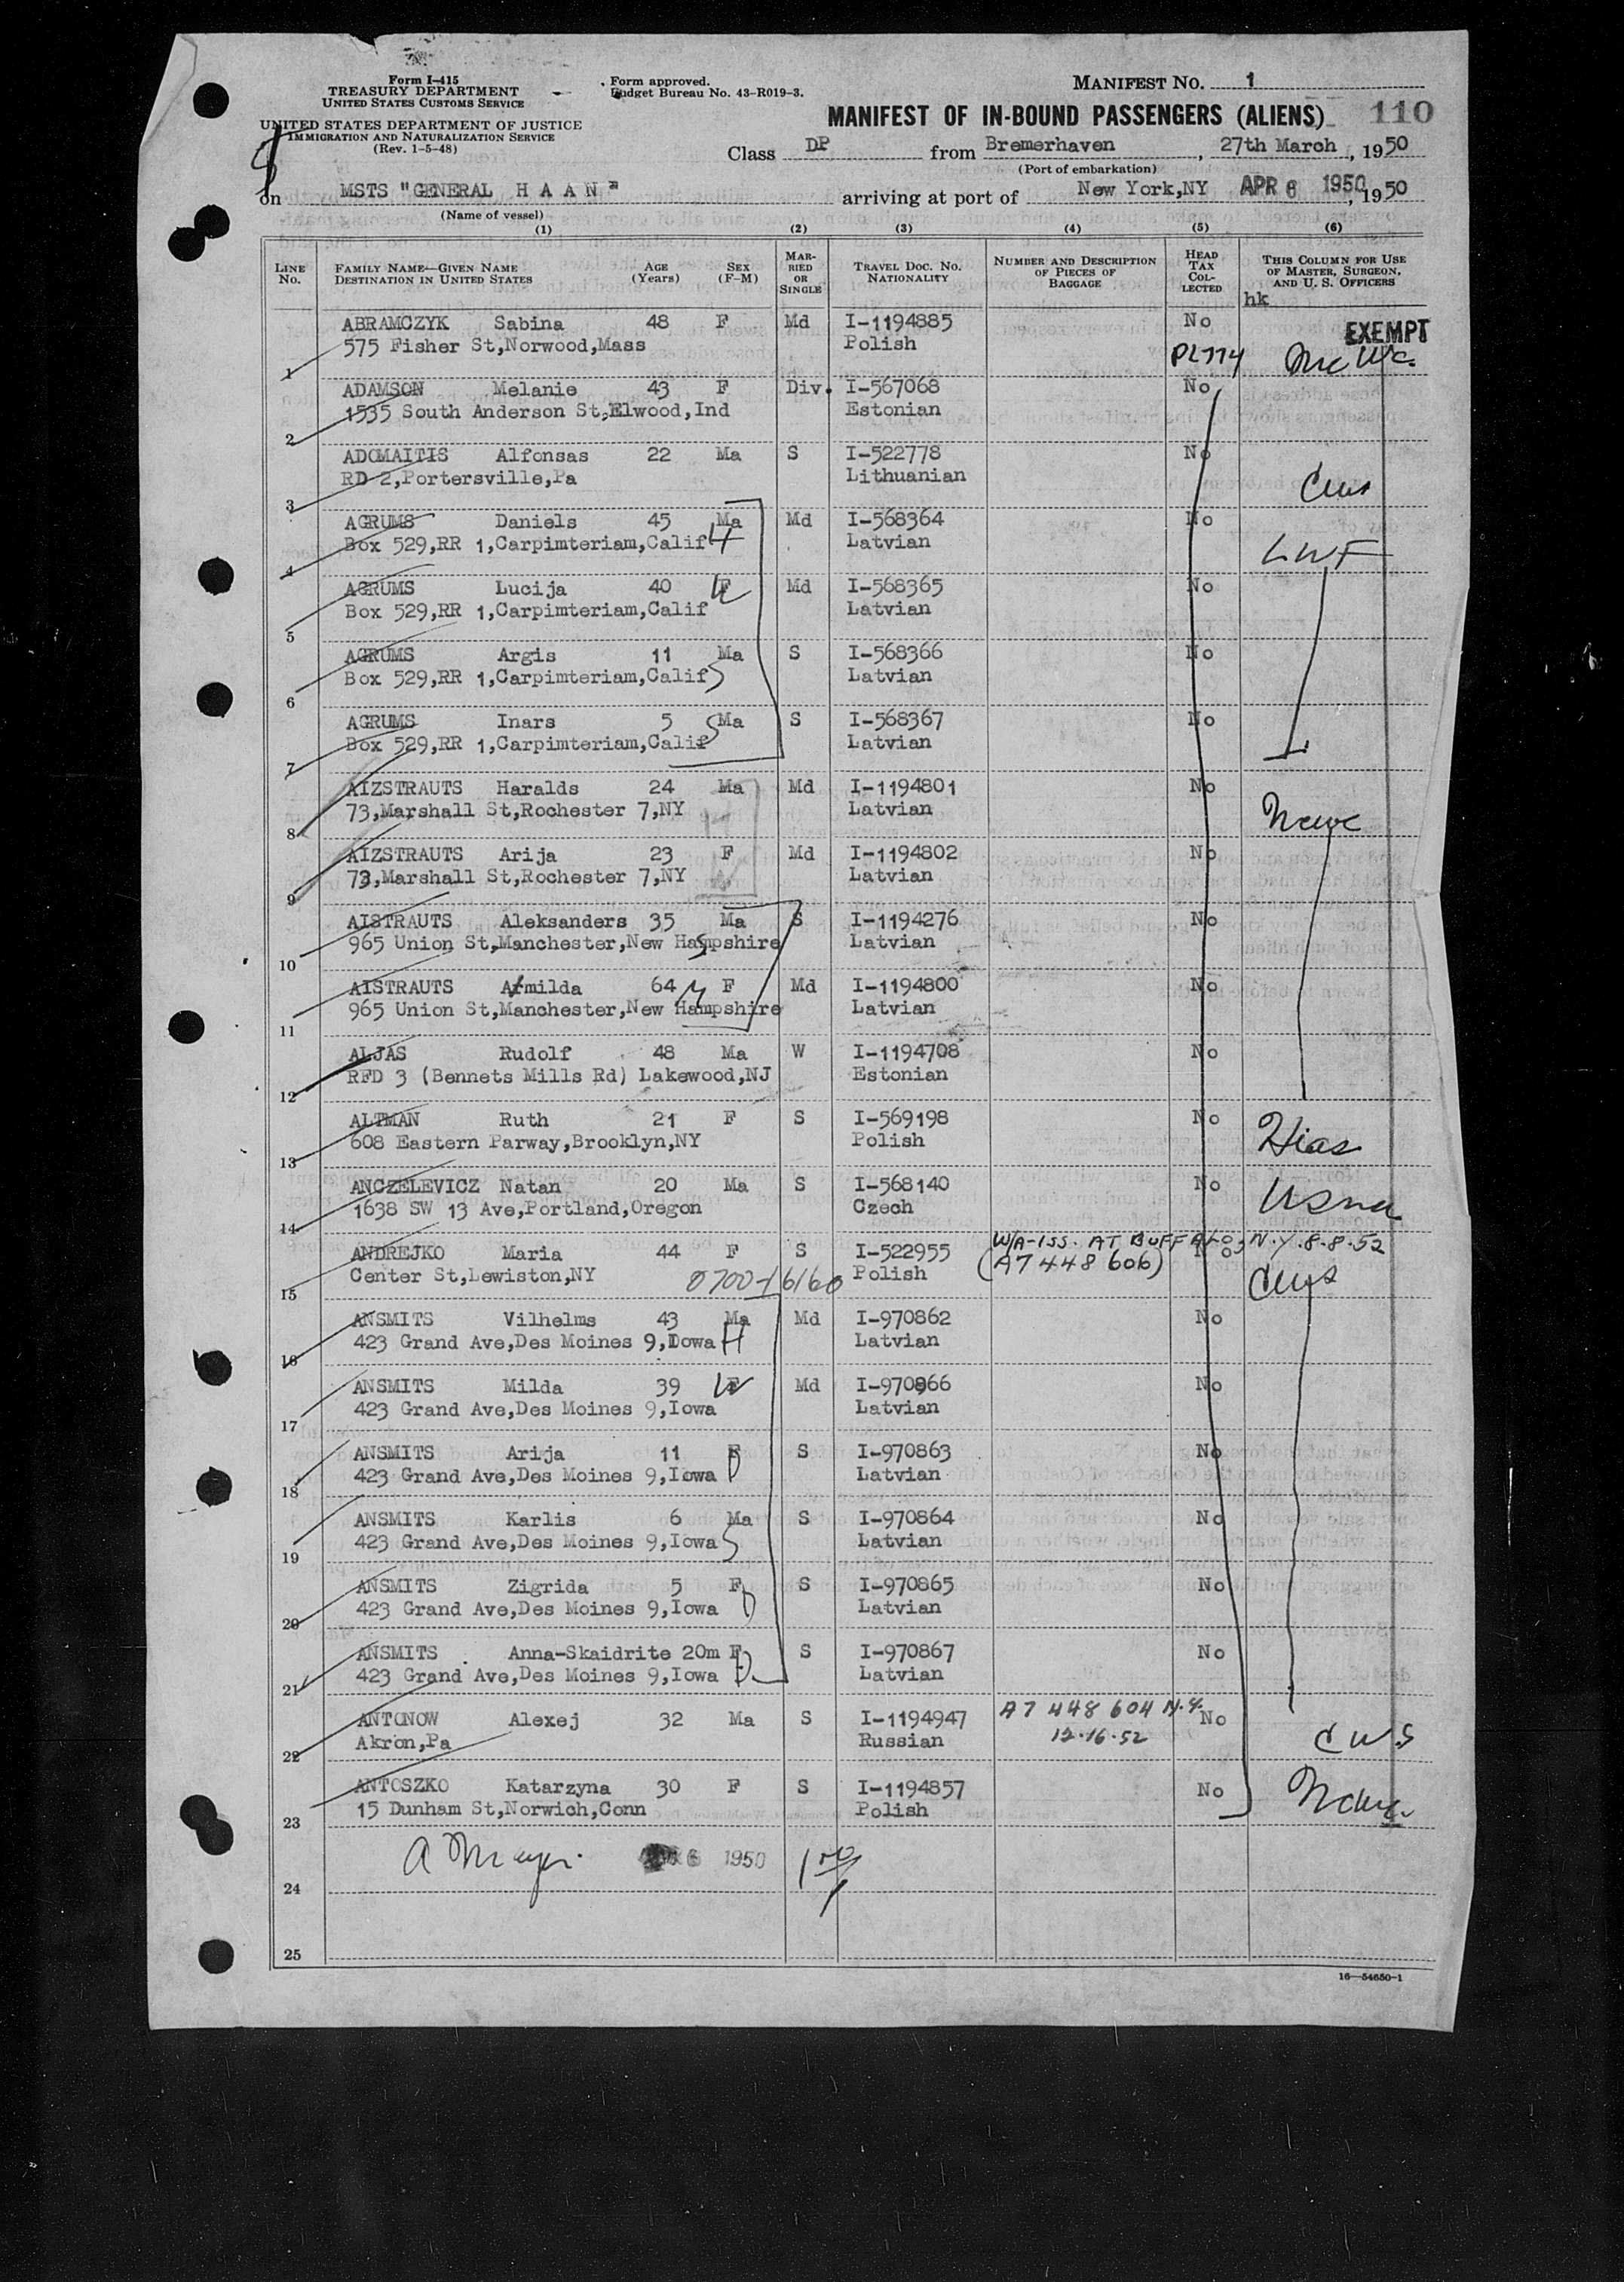 Form I-415
TREASURY DEPARTMENT
UNITED STATES CUSTOMS SERVICE
UNITED STATES DEPARTMENT OF JUSTICE
IMMIGRATION AND NATURALIZATION SERVICE
(Rev. 1-5-48)
Form approved.
Budget Bureau No. 43-R019-3.
MANIFEST NO. 1
MANIFEST OF IN-BOUND PASSENGERS (ALIENS) 110
Class DP from Bremerhaven, 27th March, 1950
(Port of embarkation)
on MSTS "GENERAL H A A N" arriving at port of New York,NY APR 6 1950, 1950
(Name of vessel)
(1) (2) (3) (4) (5) (6)
LINE NO. FAMILY NAME—GIVEN NAME DESTINATION IN UNITED STATES AGE (YEARS) SEX (F-M) MARRIED OR SINGLE TRAVEL DOC. NO. NATIONALITY NUMBER AND DESCRIPTION OF PIECES OF BAGGAGE HEAD TAX COLLECTED THIS COLUMN FOR USE OF MASTER, SURGEON, AND U. S. OFFICERS
hk
EXEMPT
ABRAMCZYK Sabina 48 F Md I-1194885 No
1 575 Fisher St,Norwood,Mass Polish PL774
ADAMSON Melanie 43 F Div. I-567068 No
2 1535 South Anderson St,Elwood,Ind Estonian
ADOMAITIS Alfonsas 22 Ma S I-522778 No
3 RD 2,Portersville,Pa Lithuanian Cws
AGRUMS Daniels 45 Ma Md I-568364 No
4 Box 529,RR 1,Carpimteriam,Calif H Latvian LWF
AGRUMS Lucija 40 F W Md I-568365 No
5 Box 529,RR 1,Carpimteriam,Calif Latvian
AGRUMS Argis 11 Ma S I-568366 No
6 Box 529,RR 1,Carpimteriam,Calif S Latvian
AGRUMS Inars 5 S Ma S I-568367 No
7 Box 529,RR 1,Carpimteriam,Calif Latvian
AIZSTRAUTS Haralds 24 Ma Md I-1194801 No
8 73,Marshall St,Rochester 7,NY Latvian
AIZSTRAUTS Arija 23 F Md I-1194802 No
9 73,Marshall St,Rochester 7,NY Latvian
AISTRAUTS Aleksanders 35 Ma S I-1194276 No
10 965 Union St,Manchester,New Hampshire S Latvian
AISTRAUTS Armilda 64 M F Md I-1194800 No
11 965 Union St,Manchester,New Hampshire Latvian
ALJAS Rudolf 48 Ma W I-1194708 No
12 RFD 3 (Bennets Mills Rd) Lakewood,NJ Estonian
ALTMAN Ruth 21 F S I-569198 No
13 608 Eastern Parway,Brooklyn,NY Polish Hias
ANCZELEVICZ Natan 20 Ma S I-568140 No
14 1638 SW 13 Ave,Portland,Oregon Czech Usna
ANDREJKO Maria 44 F S I-522955 W/A-ISS. AT BUFFALO, N.Y. 8.8.52 No
15 Center St,Lewiston,NY 0700-16160 Polish (A7 448 606) Cws
ANSMITS Vilhelms 43 Ma Md I-970862 No
16 423 Grand Ave,Des Moines 9,Iowa H Latvian
ANSMITS Milda 39 W F Md I-970866 No
17 423 Grand Ave,Des Moines 9,Iowa Latvian
ANSMITS Arija 11 F S I-970863 No
18 423 Grand Ave,Des Moines 9,Iowa D Latvian
ANSMITS Karlis 6 Ma S I-970864 No
19 423 Grand Ave,Des Moines 9,Iowa S Latvian
ANSMITS Zigrida 5 F S I-970865 No
20 423 Grand Ave,Des Moines 9,Iowa D Latvian
ANSMITS Anna-Skaidrite 20m F S I-970867 No
21 423 Grand Ave,Des Moines 9,Iowa D Latvian
ANTONOW Alexej 32 Ma S I-1194947 A7 448 604 N.Y. No
22 Akron,Pa Russian 12.16.52 CWS
ANTOSZKO Katarzyna 30 F S I-1194857 No
23 15 Dunham St,Norwich,Conn Polish
A Meyer 6 1950
24
25
16—54650-1